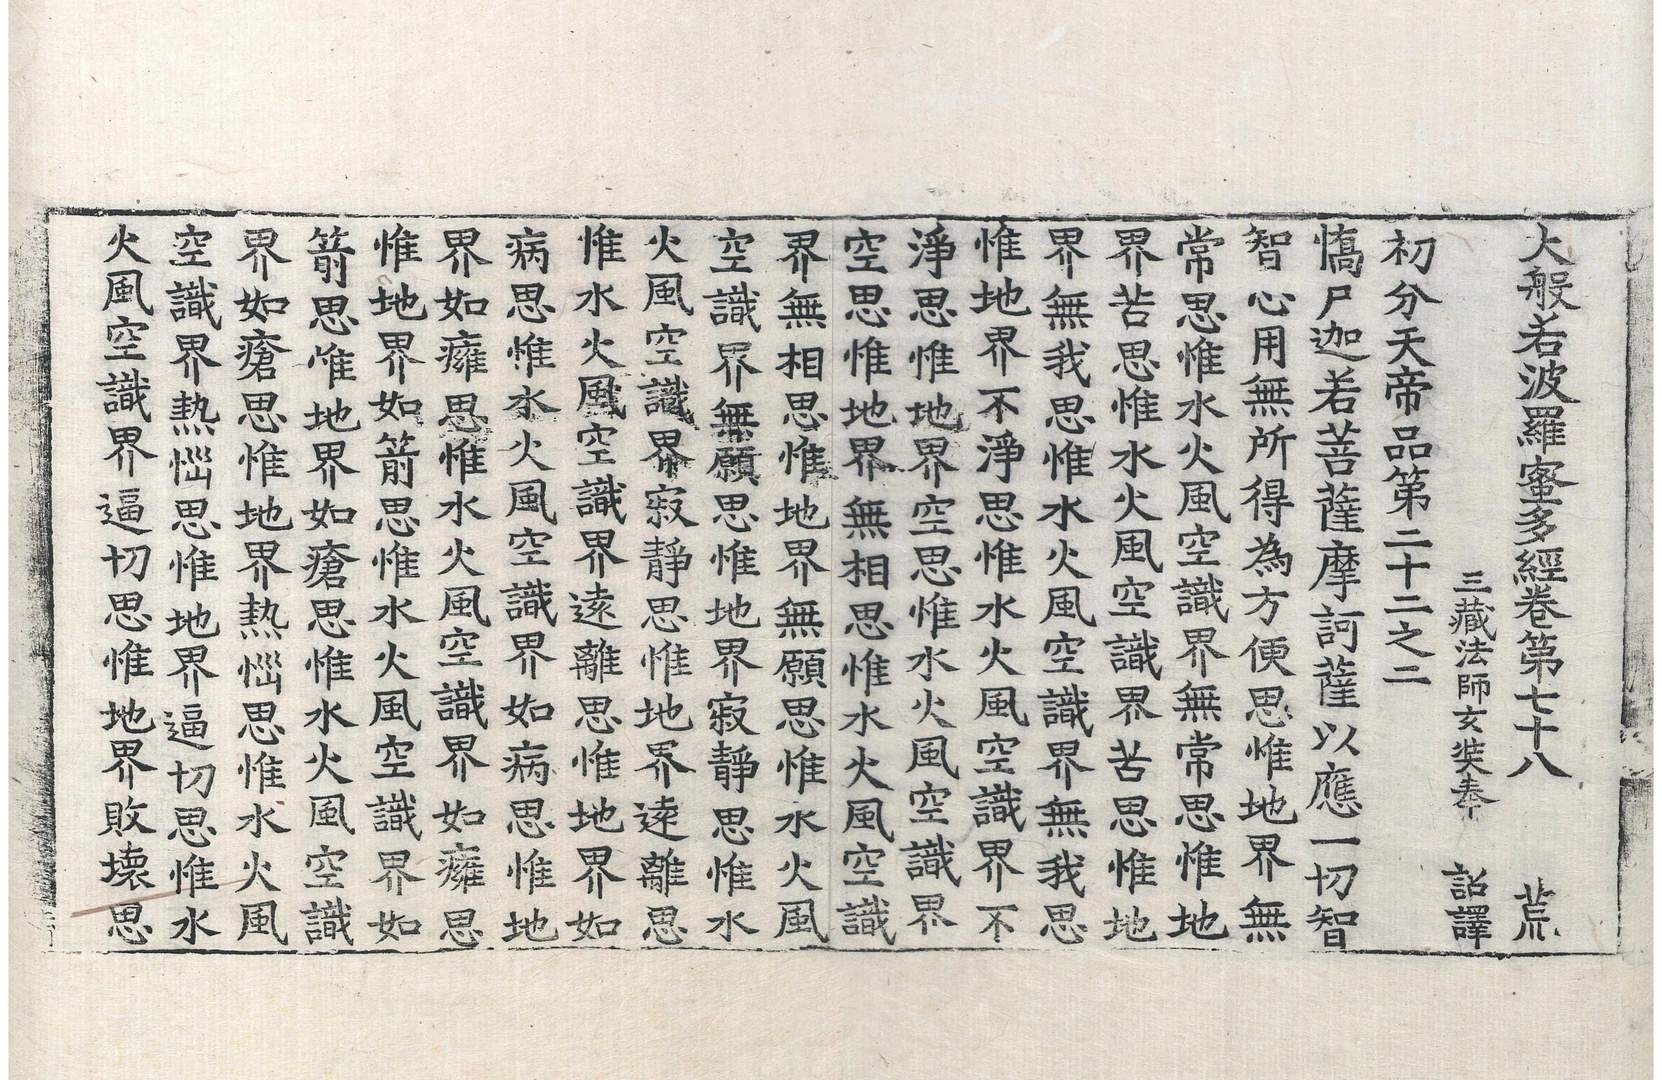 大般若波羅蜜多經卷第七十八　荒
三藏法師玄奘奉　詔譯
初分天帝品第二十二之二
憍尸迦若菩薩摩訶薩以應一切智
智心用無所得為方便思惟地界無
常思惟水火風空識界無常思惟地
界苦思惟水火風空識界苦思惟地
界無我思惟水火風空識界無我思
惟地界不淨思惟水火風空識界不
淨思惟地界空思惟水火風空識界
空思惟地界無相思惟水火風空識
界無相思惟地界無願思惟水火風
空識界無願思惟地界寂靜思惟水
火風空識界寂靜思惟地界遠離思
惟水火風空識界遠離思惟地界如
病思惟水火風空識界如病思惟地
界如癰思惟水火風空識界如癰思
惟地界如箭思惟水火風空識界如
箭思惟地界如瘡思惟水火風空識
界如瘡思惟地界熱惱思惟水火風
空識界熱惱思惟地界逼切思惟水
火風空識界逼切思惟地界敗壞思